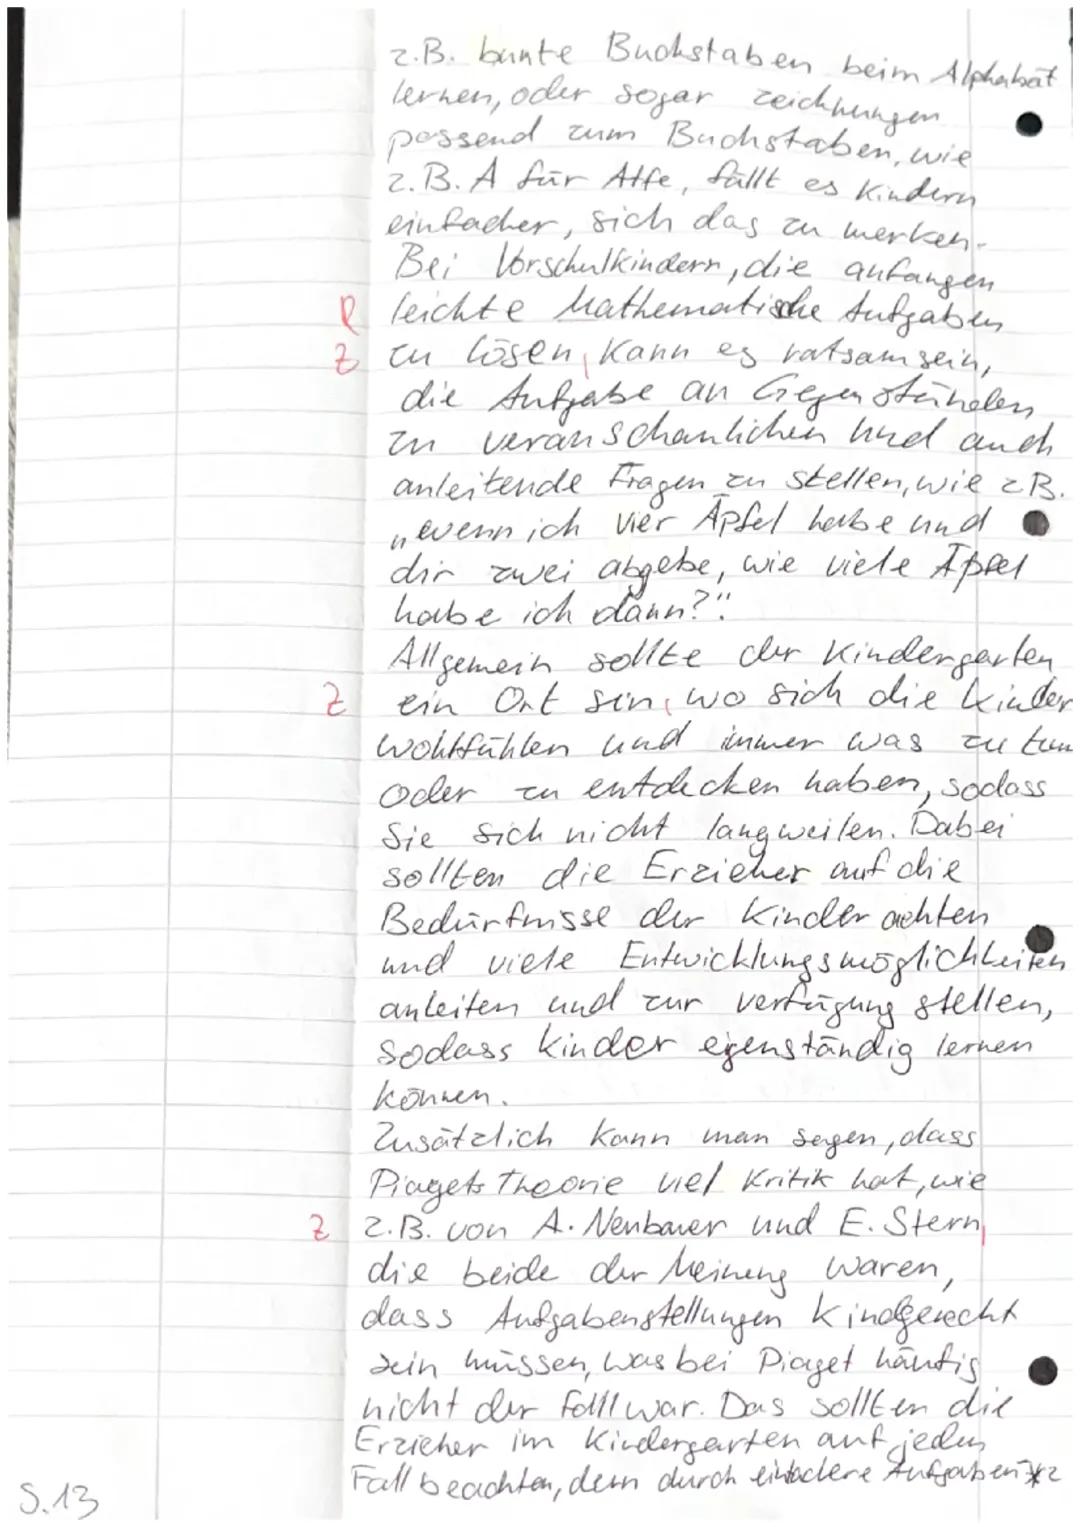 z.B. bunte Buchstaben beim Alphabät
lernen, oder sogar zeichnungen
passend zum Buchstaben, wie
z.B. A für Affe, fällt es Kindern
einfacher, sich das zu merken.
Bei Vorschulkindern, die anfangen
R leichte Mathematische Aufgaben
Z zu lösen, kann es ratsam sein,
die Aufgabe an Gegenständen
zu veranschaulichen und auch
anleitende Fragen zu stellen, wie z.B.
„wenn ich vier Äpfel habe und
dir zwei abgebe, wie viele Äpfel
habe ich dann?".
Allgemein sollte der Kindergarten
Z ein Ort sein, wo sich die Kinder
wohlfühlen und immer was zu tun
oder zu entdecken haben, sodass
Sie sich nicht langweilen. Dabei
sollten die Erzieher auf die
Bedürfnisse der Kinder achten
und viele Entwicklungsmöglichkeiten
anleiten und zur verfügung stellen,
sodass Kinder eigenständig lernen
können.
Zusätzlich kann man sagen, dass
Piagets Theorie viel Kritik hat, wie
Z z.B. von A. Neubauer und E. Stern,
die beide der Meinung waren,
dass Aufgabenstellungen kindgerecht
sein müssen, was bei Piaget häufig
nicht der Fall war. Das sollten die
Erzieher im Kindergarten auf jeden
Fall beachten, denn durch einfachere Aufgaben *2
S. 13